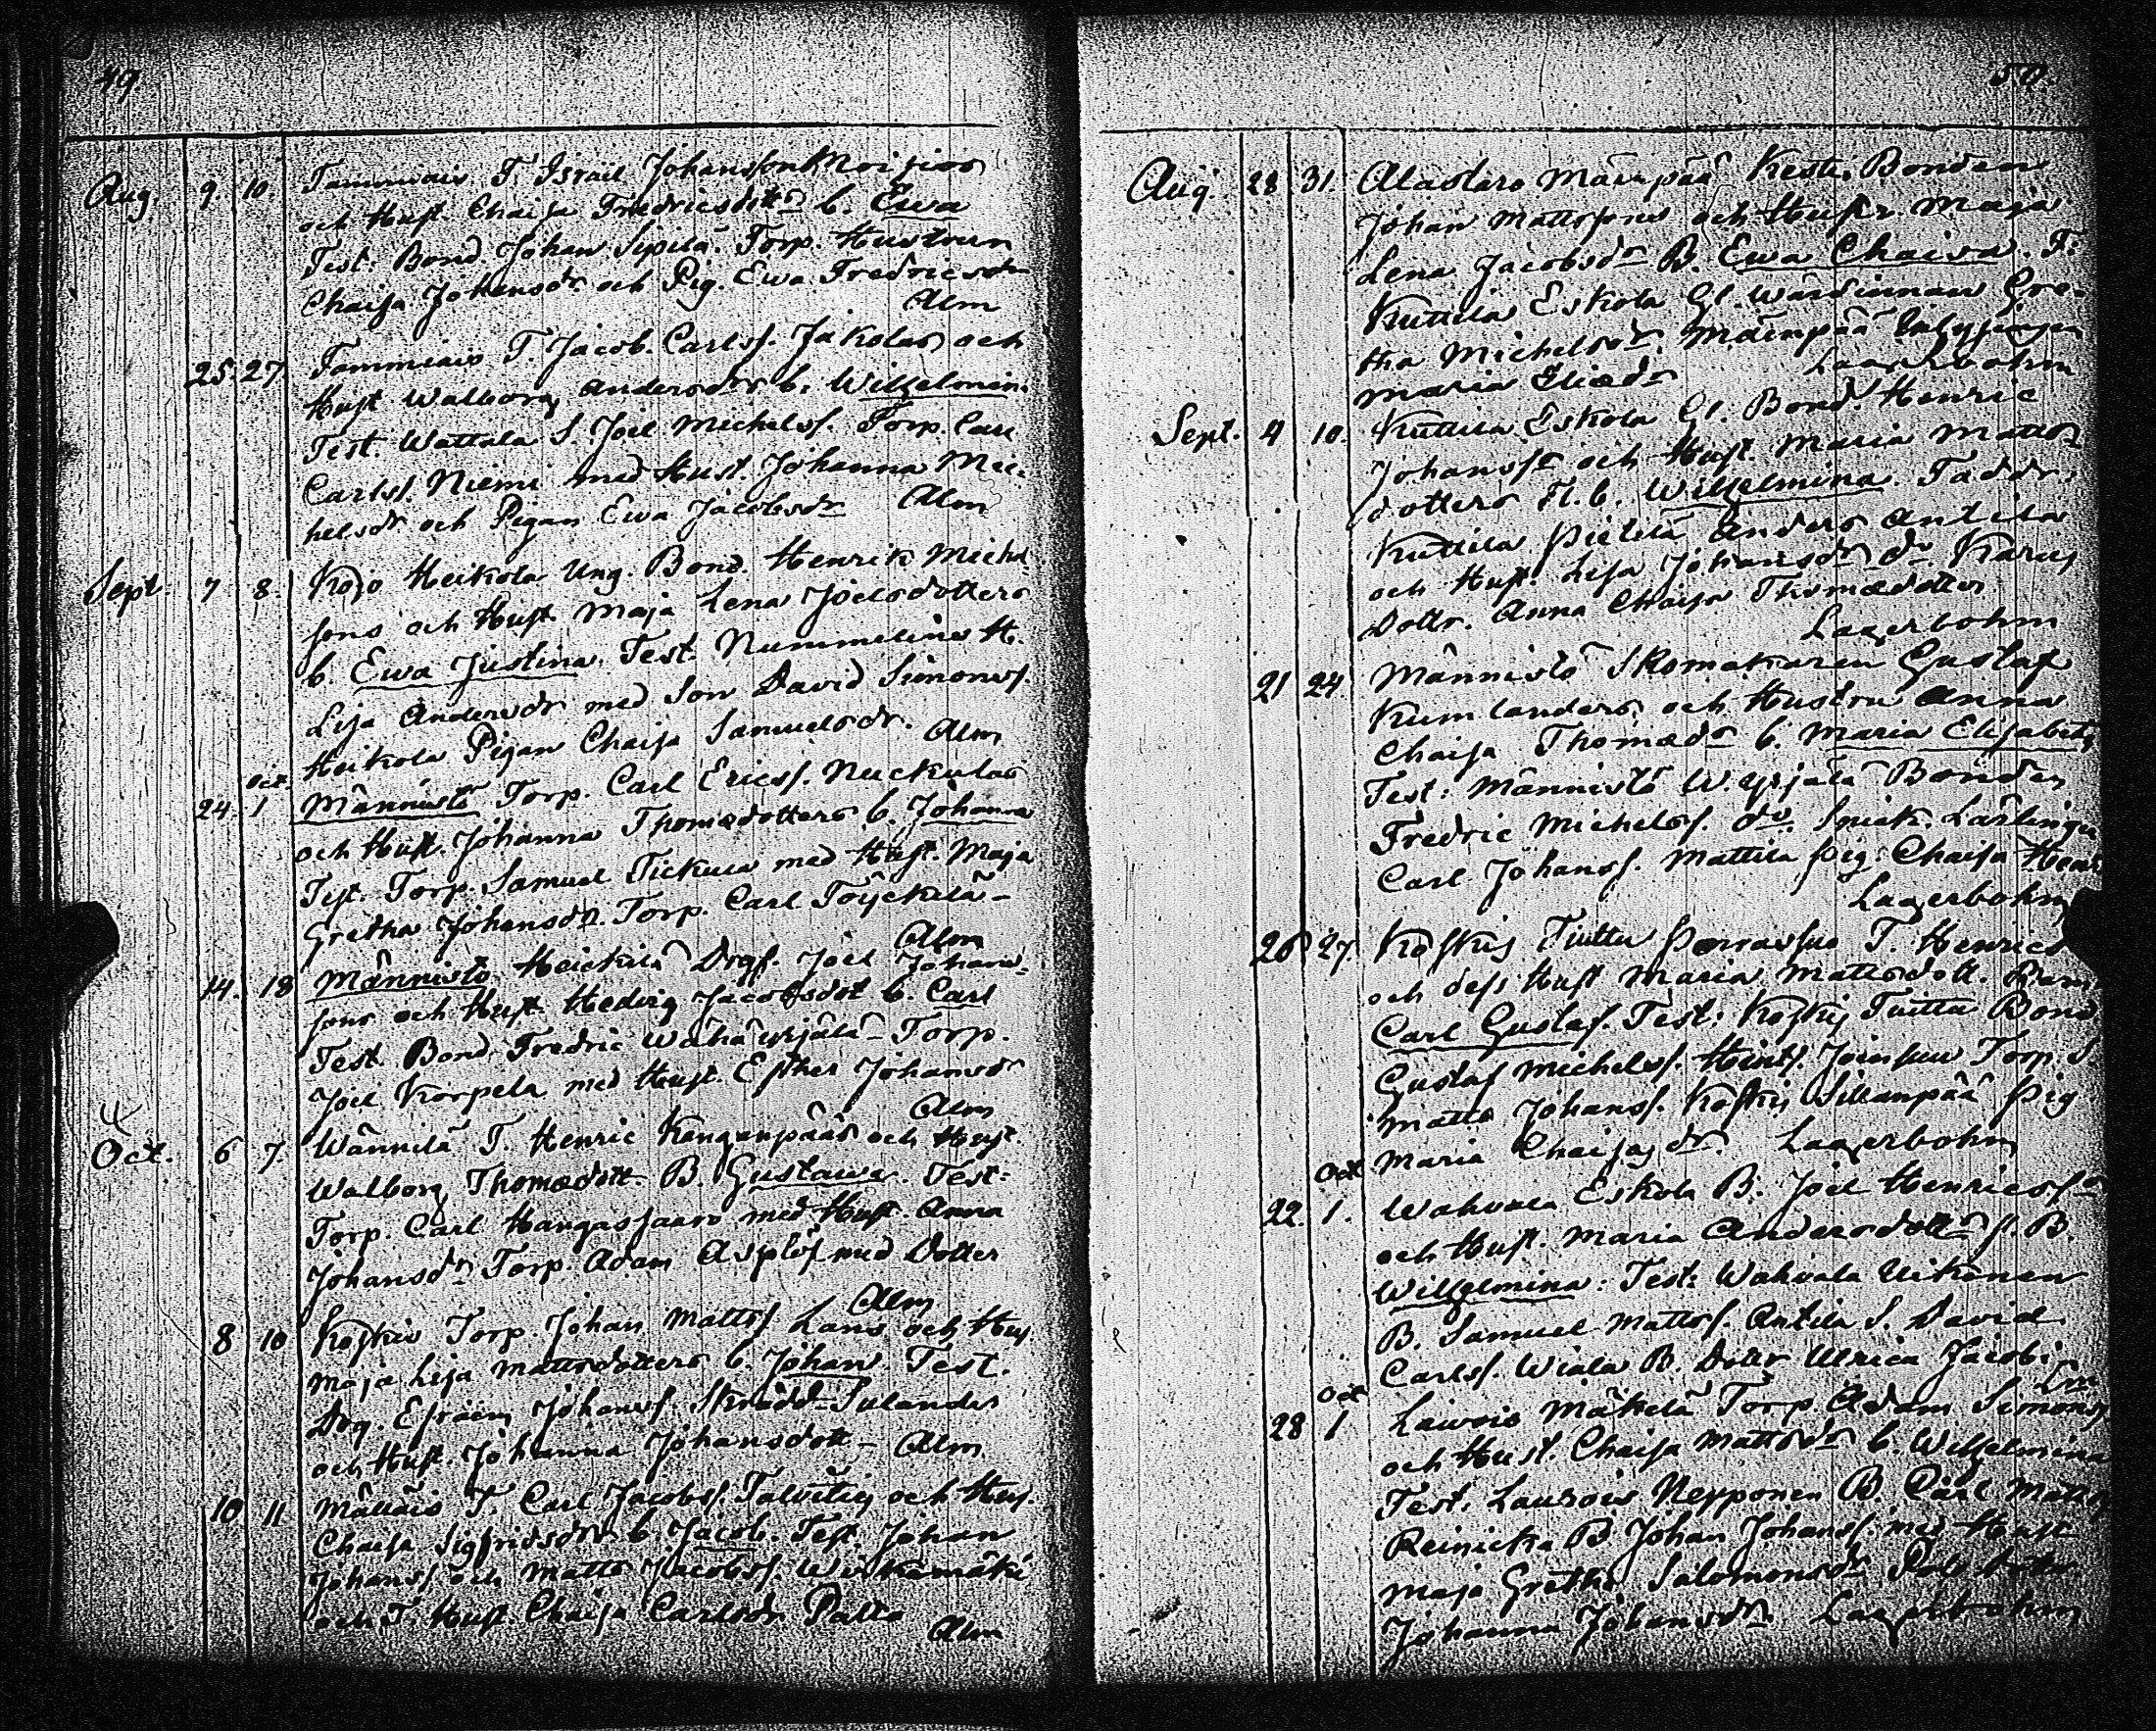 49.
Aug. 9. 10. Tammiais T. Israël Johansson
och Hust. Chaisa Fredricsdottr b. Ewa
Test: Bond Johan Sipilä. Torp. Hustrun
Chaisa Johansdr och Pig. Ewa Fredricsdr
Alm
25. 27. Tammiais T. Jacob Carlss. Jakolas och
Hust Walborg Andersdrs b. Wilhelmin.
Test. Wattala S. Joel Michelss. Torp. Carl
Carlss. Niemi med Hust. Johanna Mic-
helsdr och Pigan Ewa Jacobsdr Alm
Sept. 7 8. Kojo Heikola Ung. Bond. Henrik Michel
sons och Hust. Maja Lena Joelsdotters
b. Ewa Justina. Test. Nummelins H.
Lisa Andersdr med Son David Simonss.
Heikola Pigan Chaisa Samuelsdr. Alm
Oct.
24. 1 Männistö Torp. Carl Ericss. Nuckulas
och Hust. Johanna Thomædotters b. Johanna
Test. Torp. Samuel Tickula med Hust. Maja
Gretha Johansdr. Torp. Carl Töyckelä-
Alm
14. 18 Männistö Heickilä Drgs. Joel Johans-
sons och Hust. Hedvig Jacobsdot b. Carl
Test. Bond Fredric Wähä Yrjälä- Torp.
Joel Korpela med Hust. Esther Johansdr
Alm
Oct. 6 7. Wännilä T. Henric Kanganpääs och Hust.
Walborg Thomædott- B. Gustawa. Test:
Torp. Carl Hangassaars med Hust. Anna
Johansdr Torp. Adam Asplöf med Dotter
Alm
8 10 Koskis Torp. Johan Mattss Lans och Hus.
Maja Lisa Mattsdotters b. Johan. Test.
Drg. Efraim Johanss. Skrädd- Sulander
och Hust. Johanna Johansdott- Alm
10 11 T. Carl Jacobss. Talvitie och Hus.
Chaisa Sigfridsdrs b. Jacob. Test. Johan
Johanss. och Matts Jacobss. Wirkamäki
och T. Hust. Chaisa Carlsdr Palta
Alm
50.
Aug. 28 31. Alastaro Mäenpää Kesti Bonden
Johan Mattssons och Hustr. Maja
Lena Jacobsdr B. Ewa Chaisa. F:
Kuttila Eskola Gl. Wärdinnan Gre-
tha Michelsdr. Mäenpää
Maria Eliædr Lagerbohm
Sept. 4 10. Kuttila Eskola Gl. Bond. Henric
Johanss och Hust. Maria Matts
dotters Fl. b. Wilhelmina. Faddr:
Kuttila Pietilä Anders Antila
och Hust. Lisa Johansdr do. Karius
Dottr. Anna Chaisa Thomædotter
Lagerbohm
21 24 Männistö Skomakaren Gustaf
Kumlanders och Hustru Anna
Chaisa Thomædr b. Maria Elisabet
Test: Männistö W. Yrjälä Bonden
Fredric Michelss. do. Snick. Lärlingen
Carl Johanss. Mattila Pig. Chaisa Henr
Lagerbohm
26 27. Koskis Tuittu T. Henrics
och dess Hust Maria Mattsdott. Barn
Carl Gustaf. Test: Koskis Tuittu Bond
Gustaf Michelss. Joensuu Torp. S
Matts Johanss. Koskis Sillanpää Pig
Maria Chaisa dr. Lagerbohm
Oct
22. 1. Wahvala Eskola B. Joel Henricss
och Hust. Maria Andersdott f. B.
Wilhelmina: Test: Wahvala Uikonen
B. Samuel Mattss. Antila S. David
Carlss. Wiala B. Dottr Ulrica Jacobi
Lm
Oct
28 1 Lauwois Mäkelä Torp Adam Simonss
och Hust. Chaisa Mattsdr b. Wilhelmina
Test. Laurois Nepponen B. Carl Matts
Reinicka B Johan Johanss. med Hust
Maja Gretha Salomonsdr
Johanna Johansdr. Lagerbohm